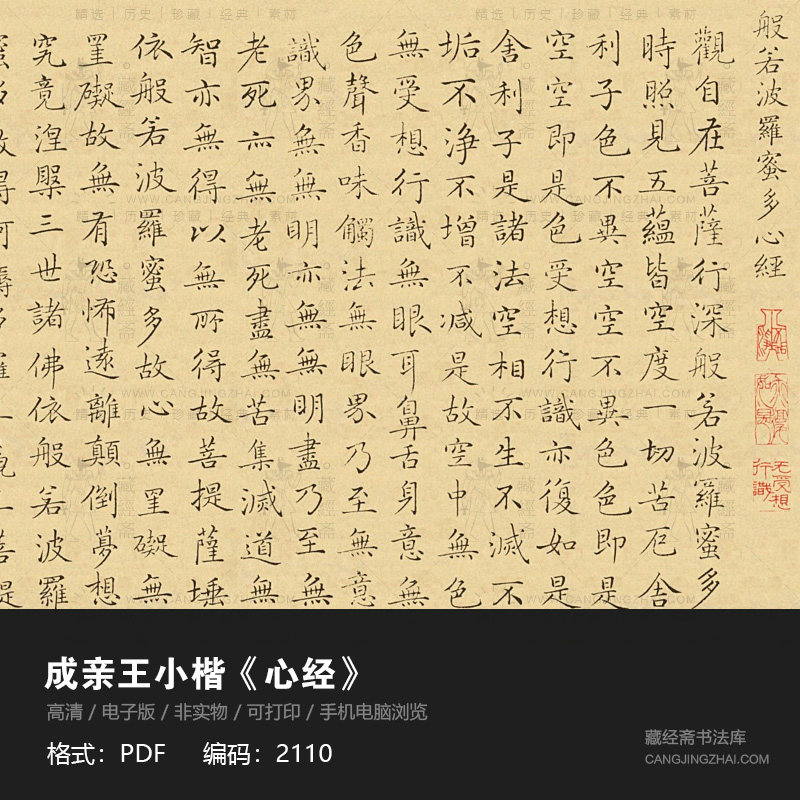 般若波羅蜜多心經
觀自在菩薩行深般若波羅蜜多
時照見五蘊皆空度一切苦厄舍
利子色不異空空不異色色即是
空空即是色受想行識亦復如是
舍利子是諸法空相不生不滅不
垢不浄不增不减是故空中無色
無受想行識無眼耳鼻舌身意無
色聲香味觸法無眼界乃至無意
識界無無明亦無無明盡乃至無
老死亦無老死盡無苦集滅道無
智亦無得以無所得故菩提薩埵
依般若波羅蜜多故心無罣礙無
罣礙故無有恐怖遠離顛倒夢想
究竟涅槃三世諸佛依般若波羅
无受想
行識
精选｜历史｜珍藏｜经典｜素材
WWW.CANGJINGZHAI.COM
成亲王小楷《心经》
高清 / 电子版 / 非实物 / 可打印 / 手机电脑浏览
格式：PDF 编码：2110
藏经斋书法库
CANGJINGZHAI.COM